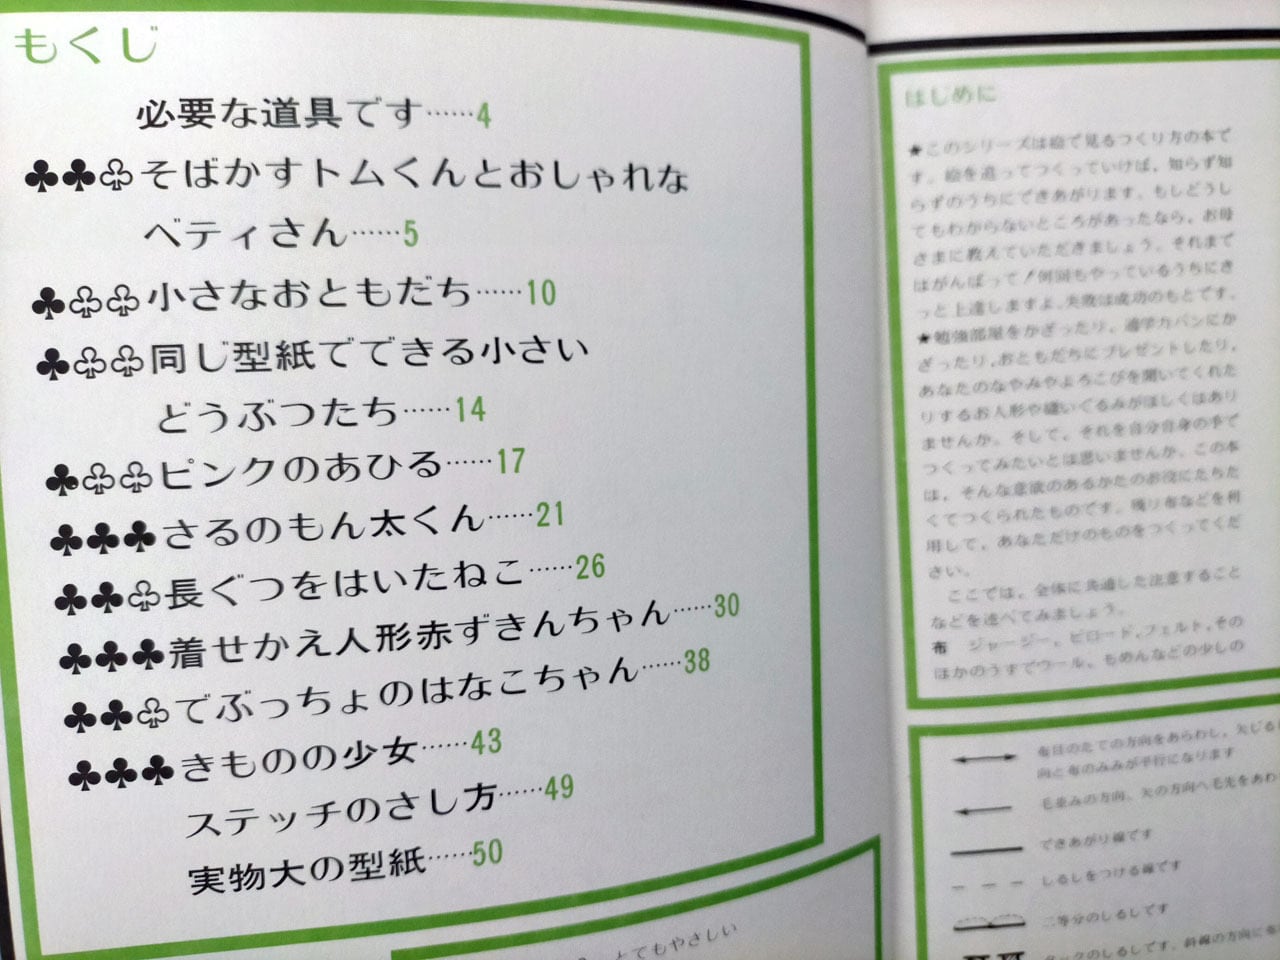 もくじ
必要な道具です……4
♣♣♧そばかすトムくんとおしゃれな
ベティさん……5
♣♧♧小さなおともだち……10
♣♧♧同じ型紙でできる小さい
どうぶつたち……14
♣♧♧ピンクのあひる……17
♣♣♣さるのもん太くん……21
♣♣♧長ぐつをはいたねこ……26
♣♣♣着せかえ人形赤ずきんちゃん……30
♣♣♧でぶっちょのはなこちゃん……38
♣♣♣きものの少女……43
ステッチのさし方……49
実物大の型紙……50
とてもやさしい
はじめに
★このシリーズは絵で見るつくり方の本で
す。絵を追ってつくっていけば、知らず知
らずのうちにできあがります。もしどうし
てもわからないところがあったなら、お母
さまに教えていただきましょう。それまで
はがんばって！何回もやっているうちにき
っと上達しますよ。失敗は成功のもとです。
★勉強部屋をかざったり、通学カバンにか
ざったり、おともだちにプレゼントしたり、
あなたのなやみやよろこびを聞いてくれた
りするお人形や縫いぐるみがほしくはあり
ませんか。そして、それを自分自身の手で
つくってみたいとは思いませんか。この本
は、そんな意欲のあるかたのお役にたちた
くてつくられたものです。残り布などを利
用して、あなただけのものをつくってくだ
さい。
ここでは、全体に共通した注意すること
などを述べてみましょう。
布　ジャージー、ビロード、フェルト、その
ほかのうすでウール、もめんなどの少しの
布目のたての方向をあらわし、矢じるし
向と布のみみが平行になります
毛並みの方向、矢の方向へ毛先をあわ
できあがり線です
しるしをつける線です
二等分のしるしです
タックのしるしです、斜線の方向に